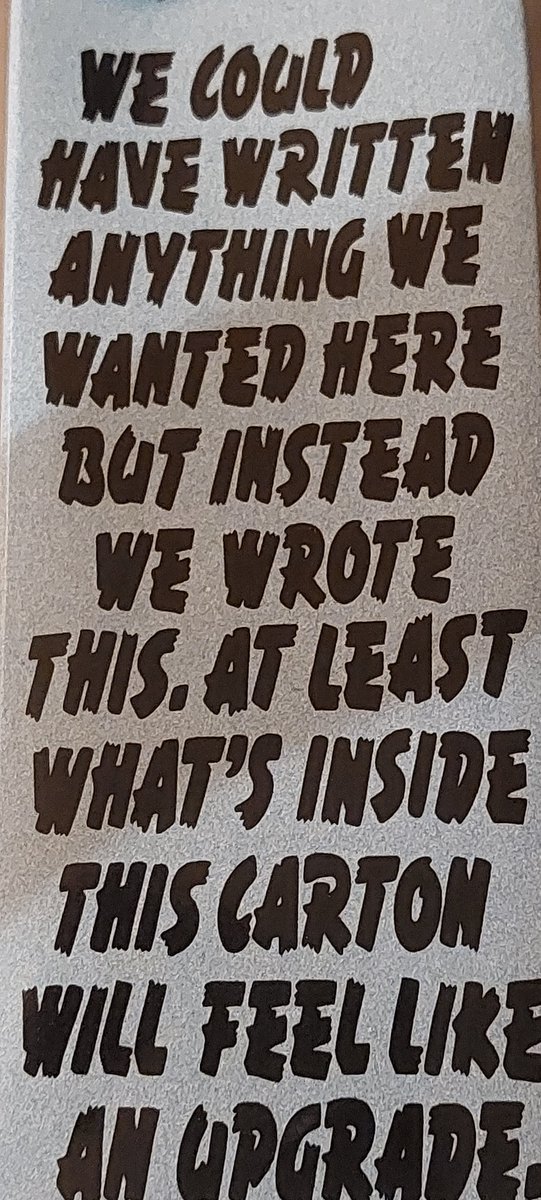 WE COULD
HAVE WRITTEN
ANYTHING WE
WANTED HERE
BUT INSTEAD
WE WROTE
THIS. AT LEAST
WHAT'S INSIDE
THIS CARTON
WILL FEEL LIKE
AN UPGRADE.